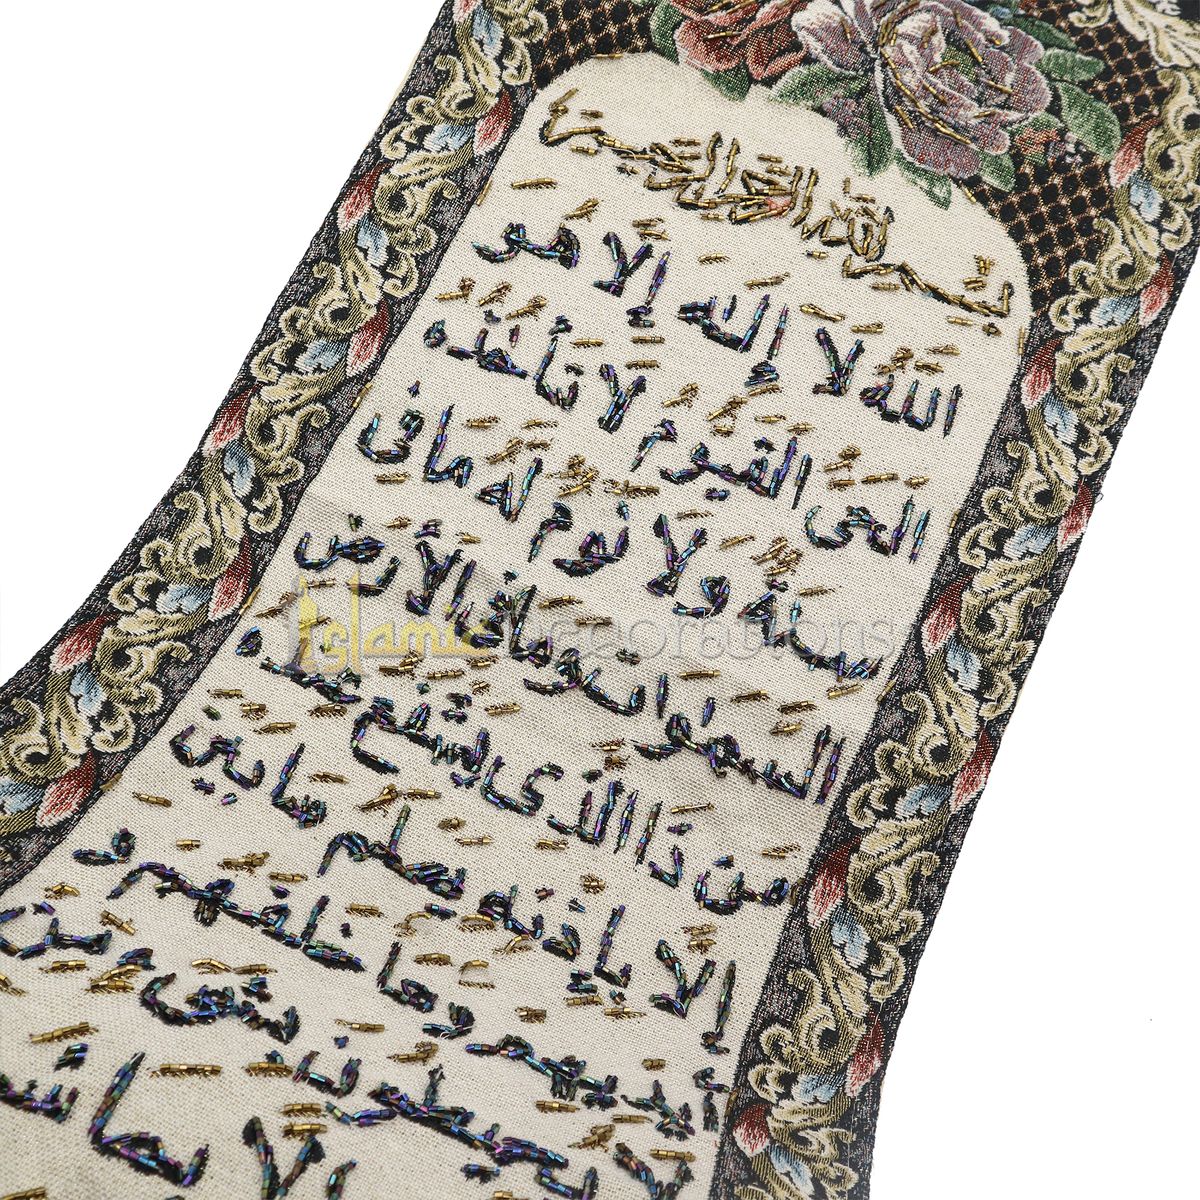 بسم الله الرحمن الرحيم
اللَّهُ لَا إِلَهَ إِلَّا هُوَ
الْحَيُّ الْقَيُّومُ لَا تَأْخُذُهُ
سِنَةٌ وَلَا نَوْمٌ لَهُ مَا فِي
السموات وما في الأرض
من ذا الذي يشفع عنده
إلا بإذنه يعلم ما بين
أيديهم وما خلفهم و
يحيطون بشيء من
إلا بما شاء
Islamic Decorations